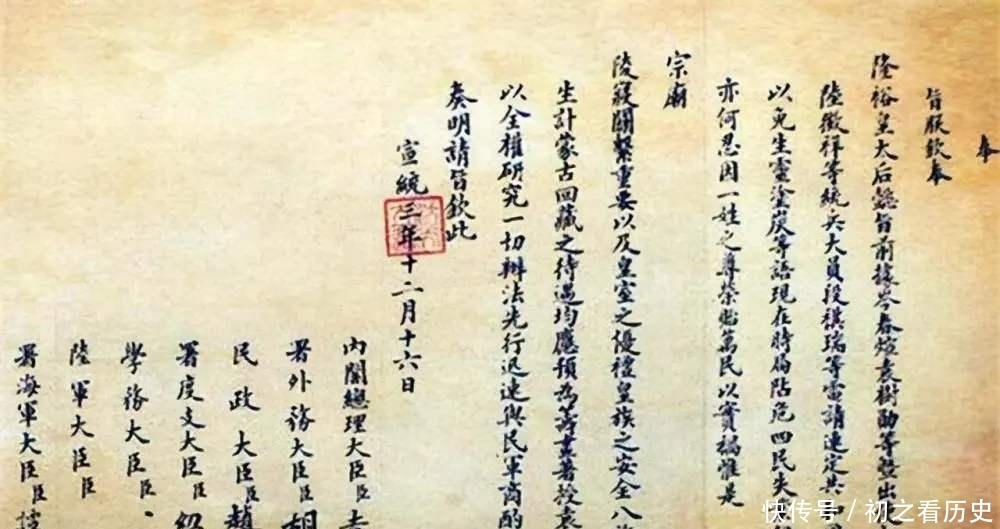 奉
旨朕欽奉
隆裕皇太后懿旨前據岑春煊袁樹勛等暨出
陸徵祥等統兵大員段祺瑞等電請速定共
以免生靈塗炭等語現在時局阽危四民失
亦何忍因一姓之尊榮貽萬民以實禍惟是
宗廟
陵寢關繫重要以及皇室之優禮皇族之安全八
生計蒙古回藏之待遇均應預為籌畫著授袁
以全權研究一切辦法先行迅速與民軍商酌
奏明請旨欽此
宣統三年十二月十六日
內閣總理大臣臣
署外務大臣臣胡
民政大臣臣趙
署度支大臣臣紹
學務大臣臣
陸軍大臣臣
署海軍大臣臣
快传号/初之看历史